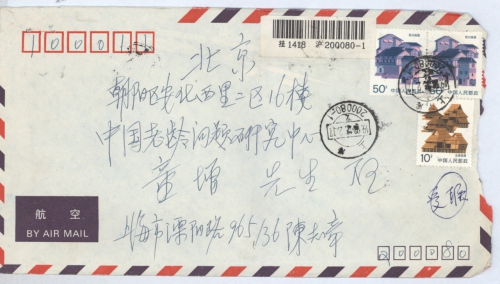 100011
挂 1418 沪 200080-1
50分
50分
中国人民邮政
10分
中国人民邮政
200080-1
北京
朝阳区安化西里二区16楼
中国老龄问题研究中心
董增 先生 收
航空
BY AIR MAIL
上海市溧阳路965/36 陳志章
200080